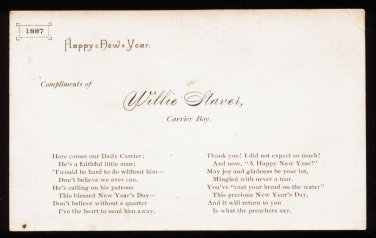 1887
Happy New Year.
Compliments of
Willie Staver,
Carrier Boy.
Here comes our Daily Carrier;
He's a faithful little man;
'Twould be hard to do without him—
Don't believe we ever can.
He's calling on his patrons
This blessed New Year's Day—
Don't believe without a quarter
I've the heart to send him away.
Thank you! I did not expect so much!
And now, "A Happy New Year!"
May joy and gladness be your lot,
Mingled with never a tear.
You've "cast your bread on the water"
This precious New Year's Day,
And it will return to you
Is what the preachers say.